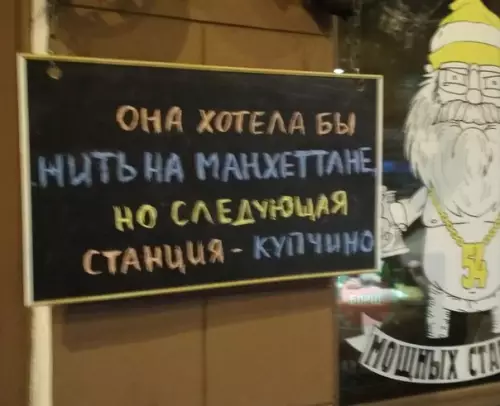 ОНА ХОТЕЛА БЫ
ЖИТЬ НА МАНХЕТТАНЕ,
НО СЛЕДУЮЩАЯ
СТАНЦИЯ - КУПЧИНО
54
МОЩНЫХ